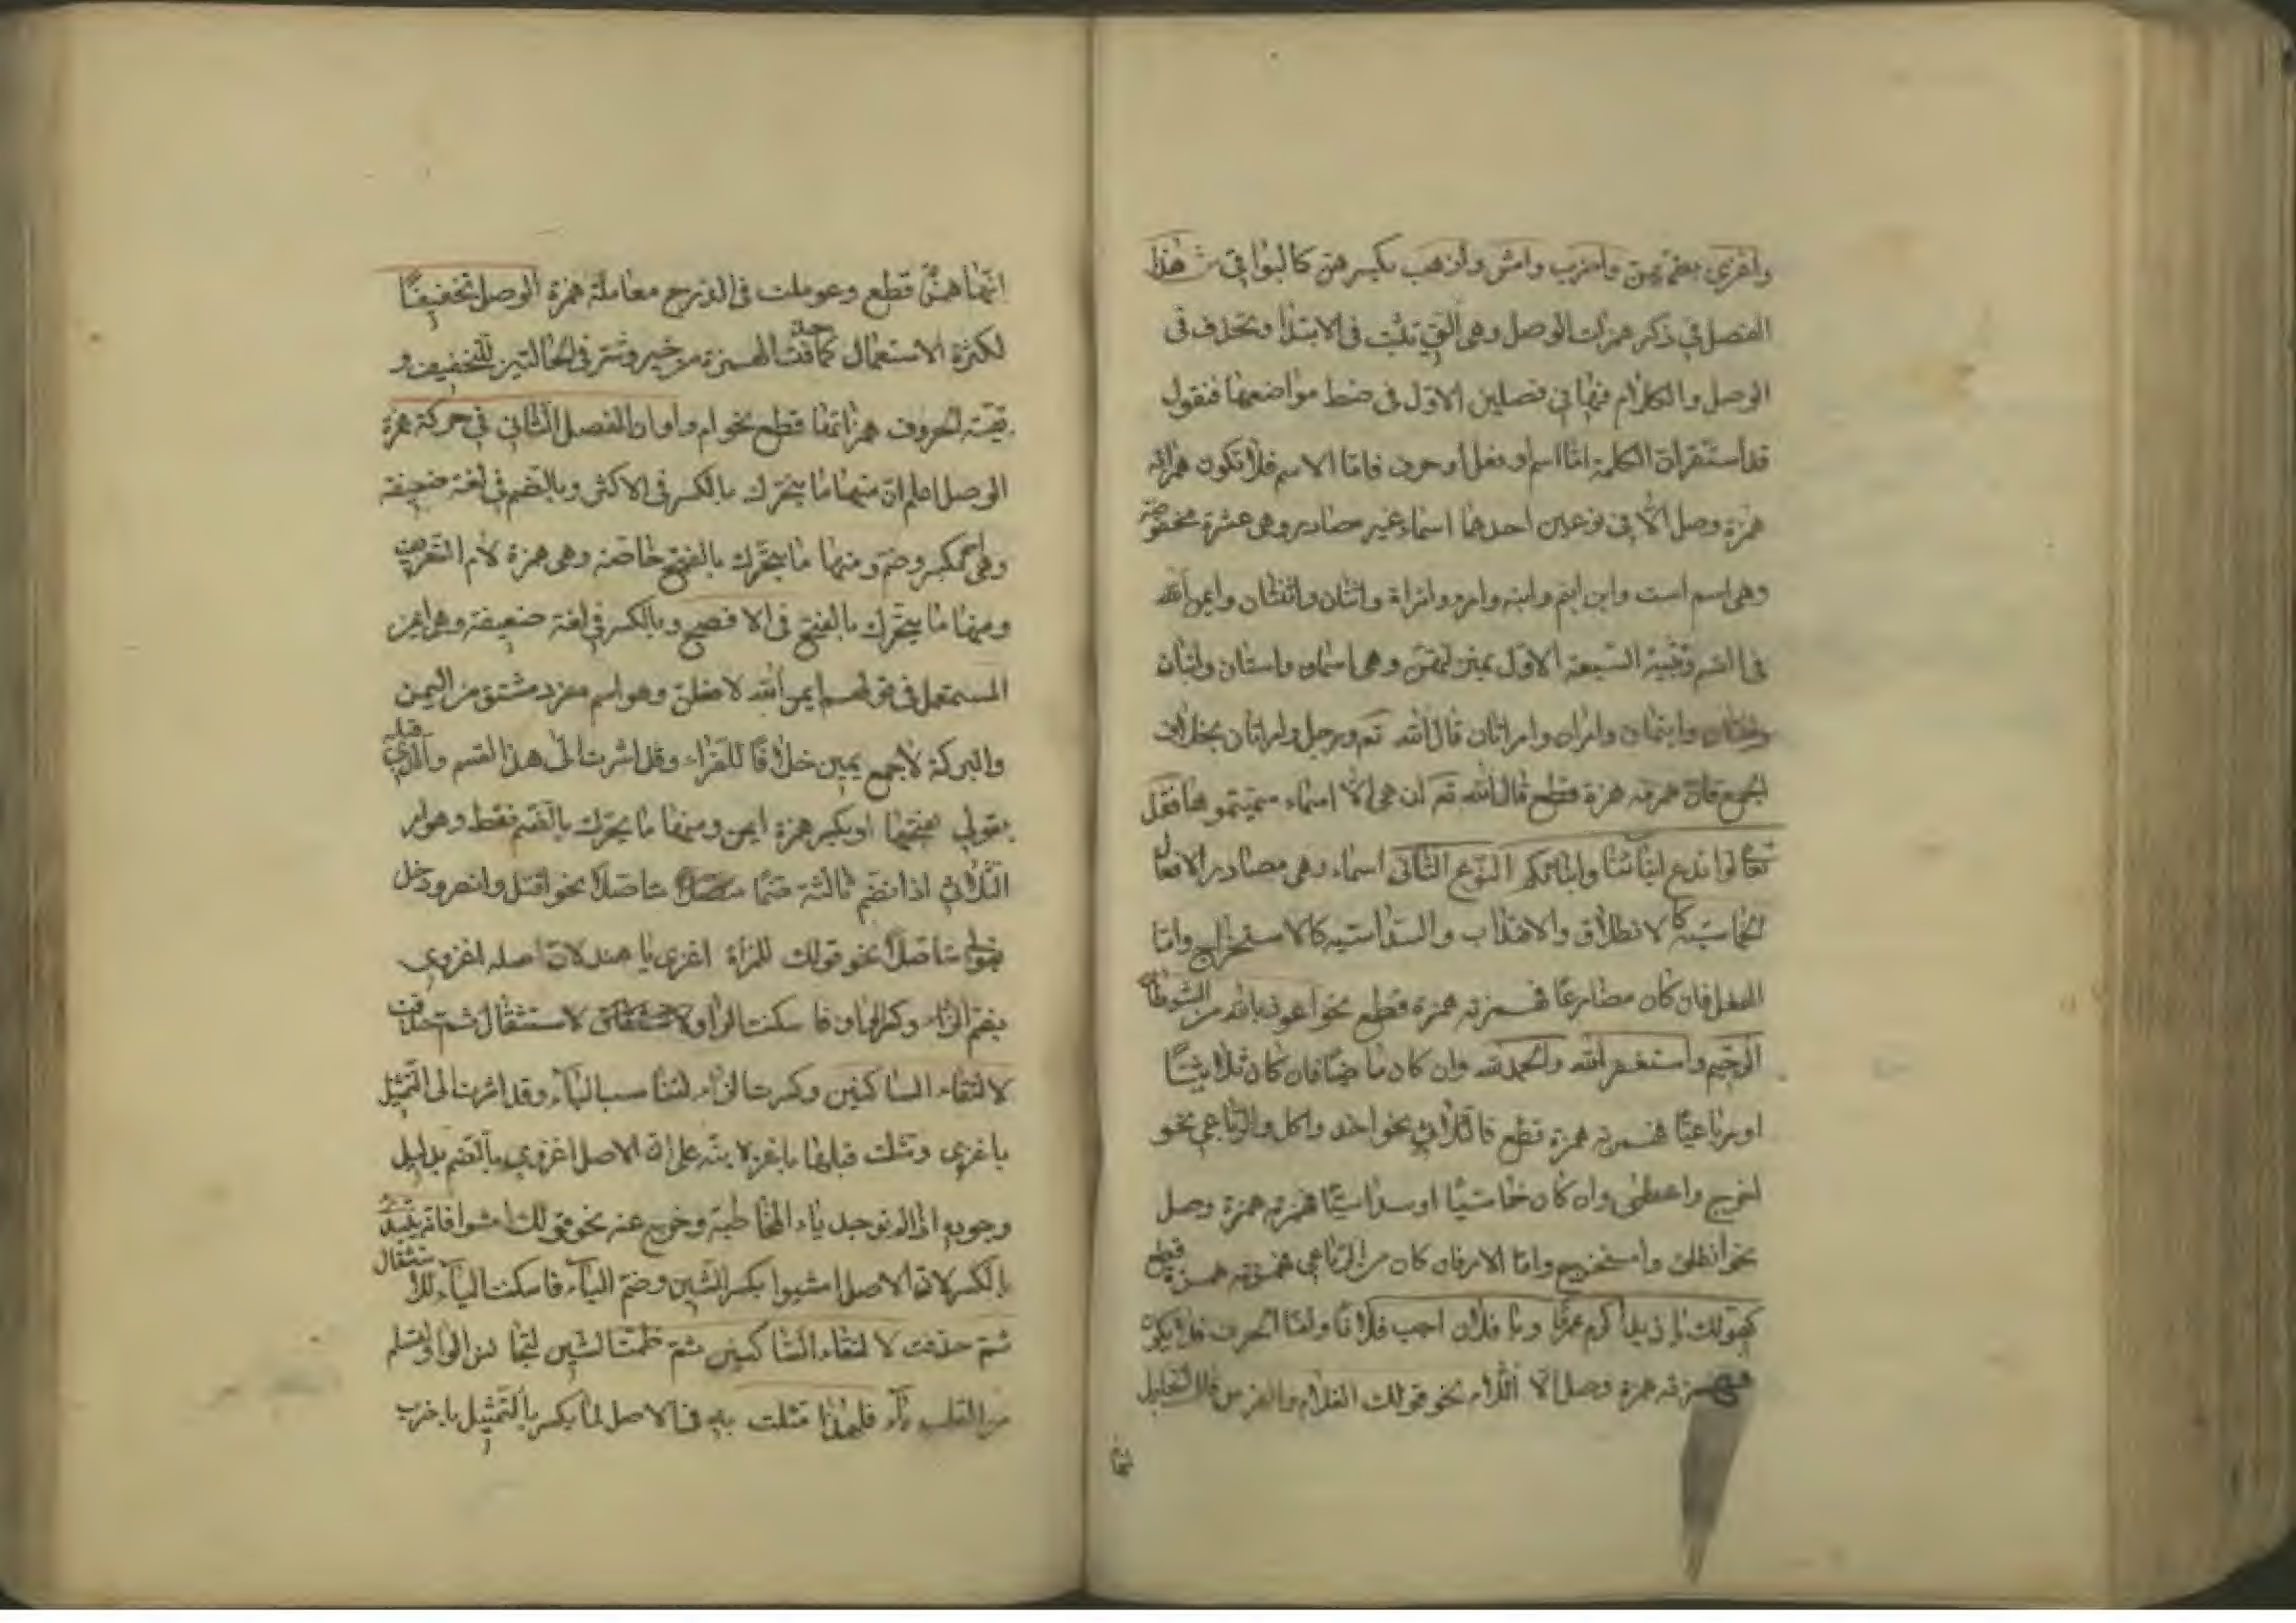 واغزي بضمهن واضرب وامش واذهب بكسرهن كالبواقي ش هذا
الفصل في ذكر همزات الوصل وهي التي تثبت في الابتداء وتحذف في
الوصل والكلام فيها في فصلين الاول في ضبط مواضعها فنقول
قد استقر ان الكلمة اما اسم او فعل او حرف فاما الاسم فلا تكون همزته
همزة وصل الا في نوعين احدهما اسماء غير مصادر وهي عشرة محفوظة
وهي اسم است وابن ابنم وابنة وامرو وامراة واثنان واثنتان وايمن الله
في القسم وتثنية السبعة الاول بمنزلتهن وهي اسمان واستان وابنان
وابنتان وابنمان وامران وامراتان قال الله تع ورجل وامراتان بخلاف
الجمع فان همزته همزة قطع قال الله تع ان هي الا اسماء سميتموها فقل
تعالوا ندع ابنائنا وابنائكم النوع الثاني اسماء وهي مصادر الافعال
الخماسية كالانطلاق والاقتداب والسداسية كالاستخراج واما
الفعل فان كان مضارعا فهمزته همزة قطع نحو اعوذ بالله من الشيطان
الرجيم واستغفر الله والحمد لله وان كان ماضيا فان كان ثلاثيا
او رباعيا فهمزته همزة قطع فالثلاثي نحو اخذ واكل والرباعي نحو
اخرج واعطى وان كان خماسيا او سداسيا فهمزته همزة وصل
نحو انطلق واستخرج واما الامر فان كان من الرباعي فهمزته همزة قطع
كقولك يا زيد اكرم عمرا ويا فلان اجب فلانا واما الحرف فلا يكون
همزته همزة وصل الا اللام نحو قولك الغلام والفرس قال الخليل
انها
انها همزة قطع وعوملت في الدرج معاملة همزة الوصل تخفيفا
لكثرة الاستعمال كما حذفت الهمزة من خير وشر في الحالتين للتخفيف و
بقية الحروف همزاتها قطع نحو ام واو وان الفصل الثاني في حركة همزة
الوصل اعلم ان منها ما يتحرك بالكسر في الاكثر وبالضم في لغة ضعيفة
وهي ومنها ما يتحرك بالفتح خاصة وهي همزة لام التعريف
ومنها ما يتحرك بالفتح في الافصح وبالكسر في لغة ضعيفة وهي ايمن
المستعمل في قولهم ايمن الله لافعلن وهو اسم مفرد مشتق من اليمن
والبركة لا جمع يمين خلافا للفراء وقد اشرت الى هذا القسم والذي قبله
بقولي بفتحهما او بكسر همزة ايمن ومنها ما يحرك بالضم فقط وهو امر
الثلاثي اذا انضم ثالثه ضما متاصلا نحو اقتل وانصر ودخل
بقولي متاصلا نحو قولك للمرأة اغزي يا هند لان اصله اغزوي
بضم الزاء وكسر الواو فاسكنت الواو للاستثقال ثم حذفت
لالتقاء الساكنين وكسرت الزاء لتناسب الياء وقد اشرت الى التمثيل
باغزي ومثلت قبلها باغز لانبه على ان الاصل اغزوي بالضم بدليل
وجوده اذا لم توجد ياء المخاطبة وخرج عنه نحو قولك امشوا فانه يبتدئ
بالكسر لان الاصل امشيوا بكسر الشين وضم الياء فاسكنت الياء للاستثقال
ثم حذفت لالتقاء الساكنين ثم ضمت الشين لتجانس الواو ولتسلم
من القلب ياء فلهذا مثلت به في الاصل لما يكسر بالتمثيل باضرب